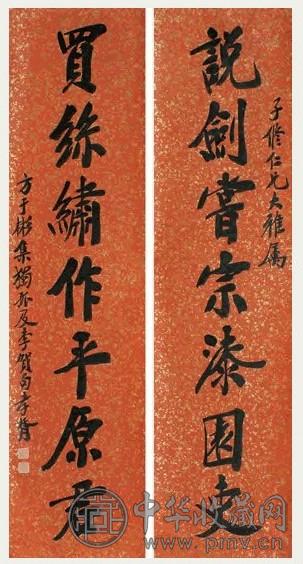 子修仁兄大雅屬
說劍嘗宗漆園吏
買絲繡作平原君
方于彬集獨孤及李賀句孝胥
中华收藏网
www.pmv.cn